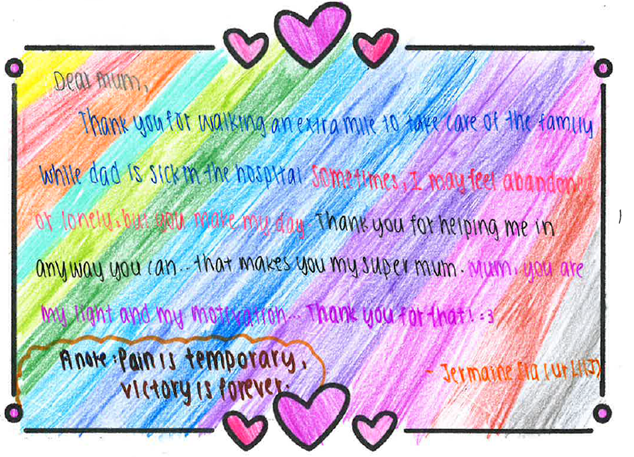 Dear mum,
Thank you for walking an extra mile to take care of the family
while dad is sick in the hospital. Sometimes, I may feel abandoned
or lonely, but you make my day. Thank you for helping me in
anyway you can.. that makes you my super mum. Mum, you are
my light and my motivation... Thank you for that! :3
A note: Pain is temporary,
victory is forever.
~ Jermaine Sia